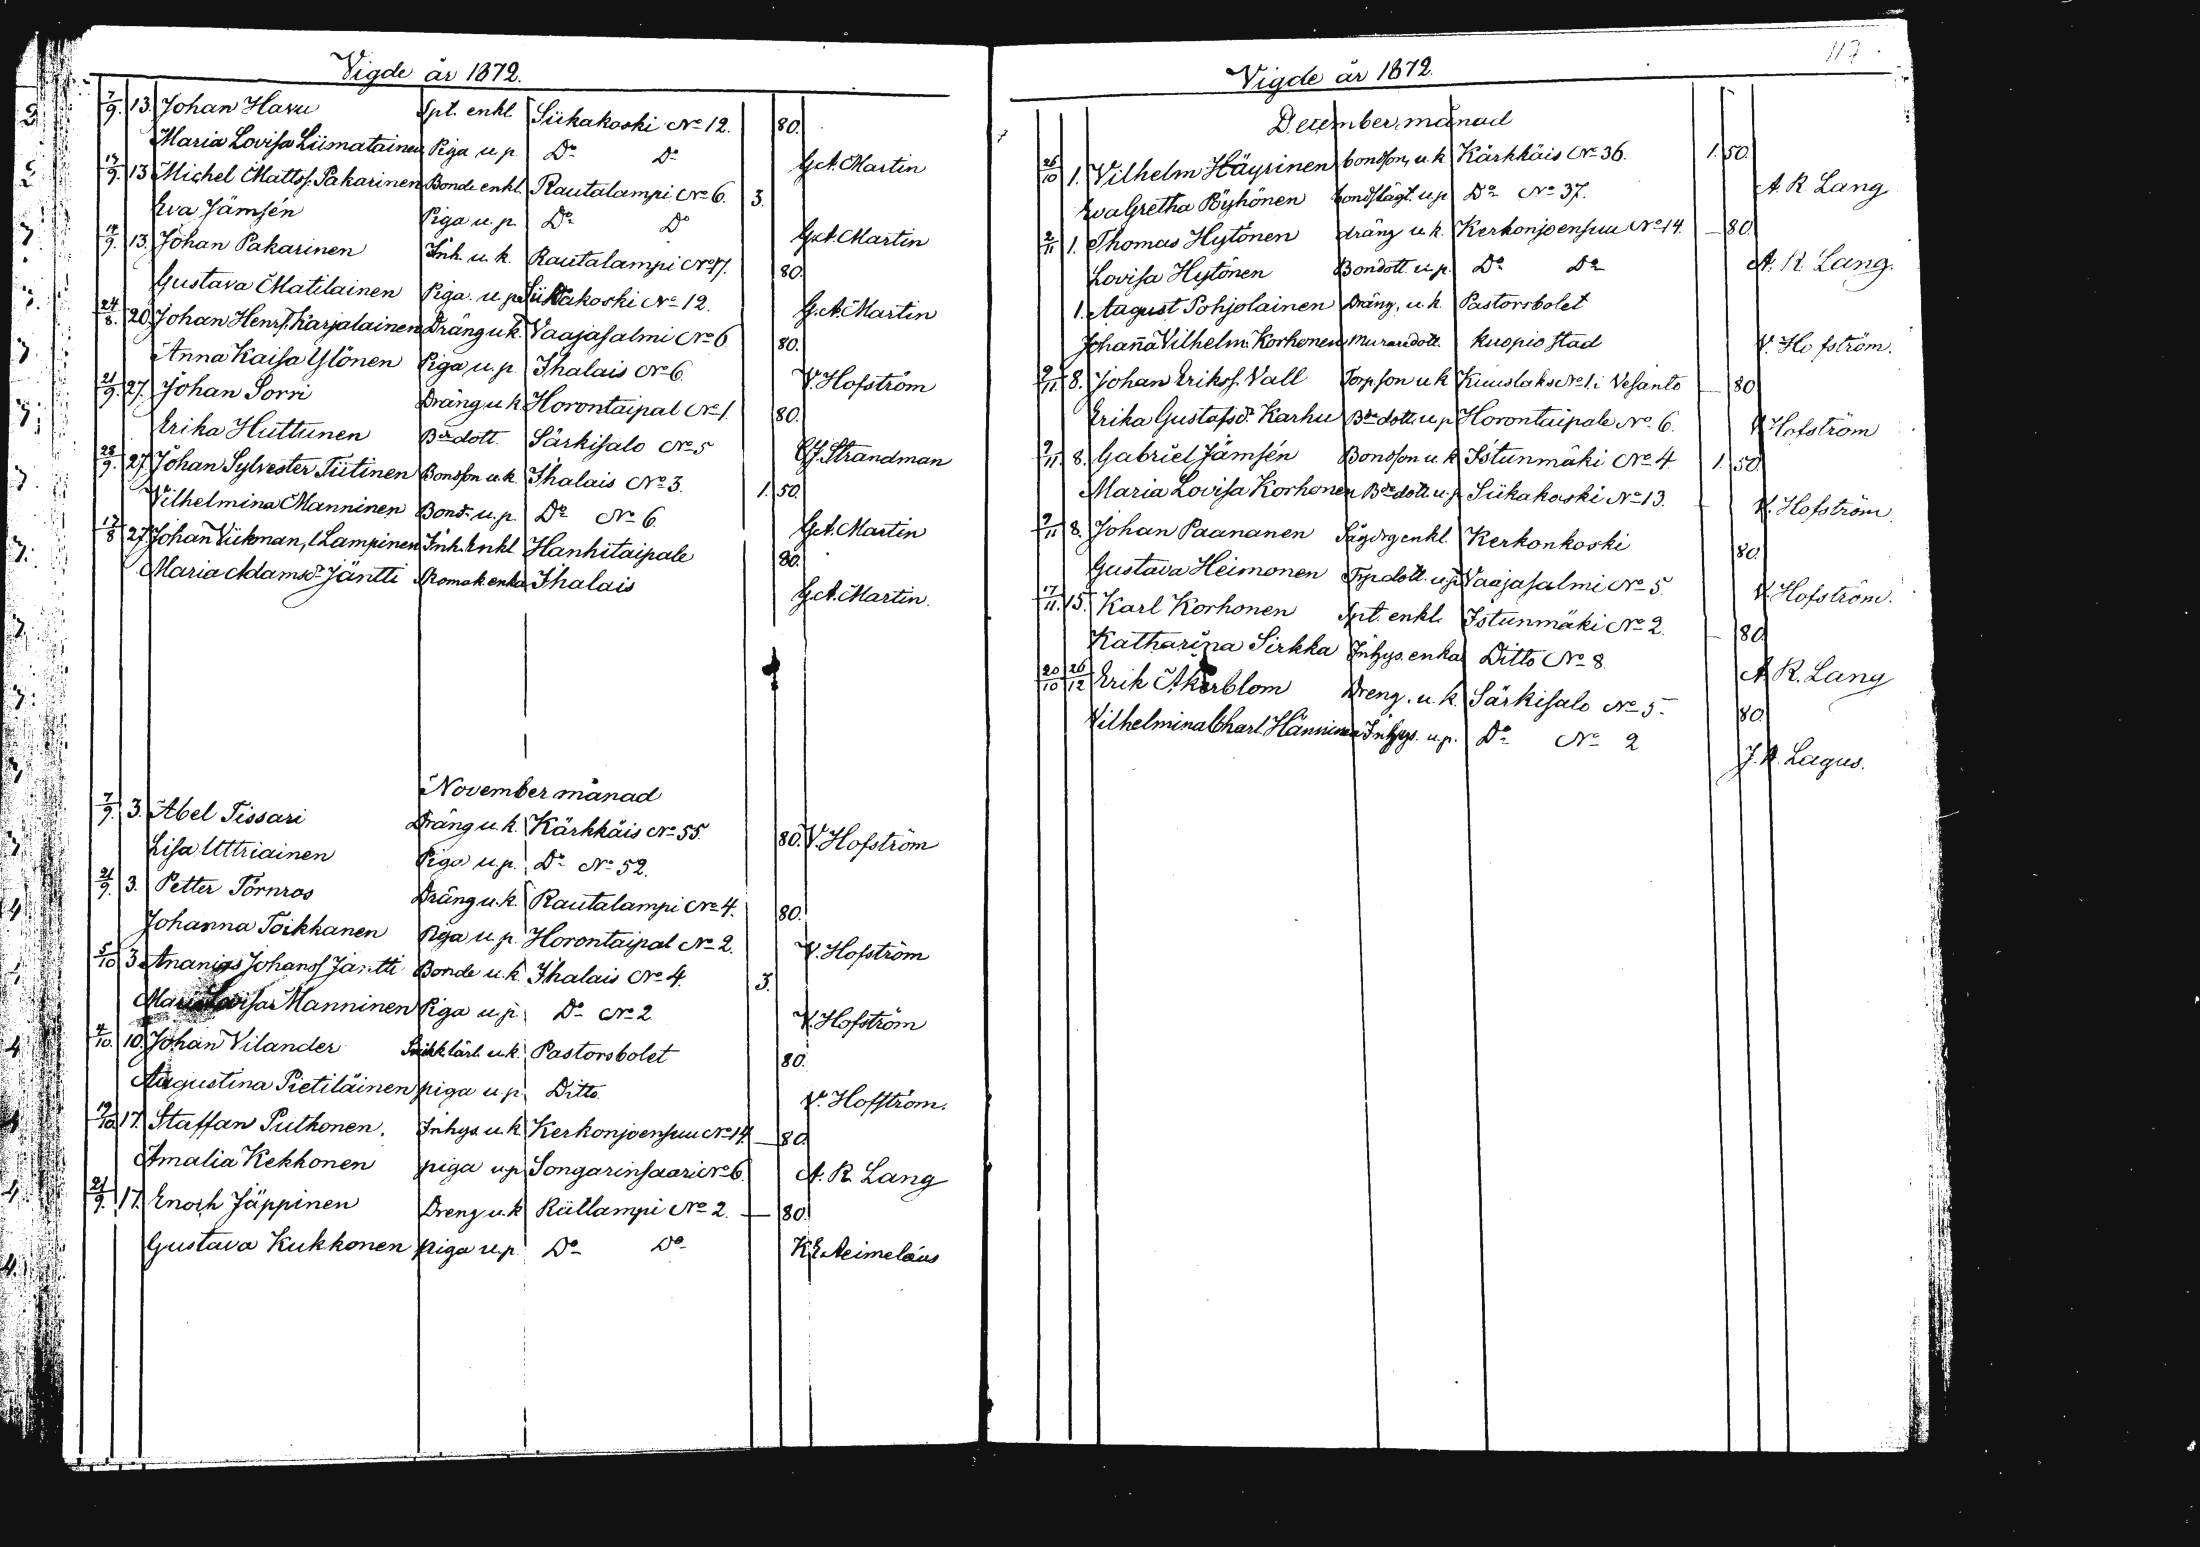 Vigde år 1872.
7/9. 13. Johan Havu Spt. enkl Siikakoski No 12. 80.
Maria Lovisa Liimatainen Piga u.p. Do Do G.A. Martin
13 Michel Mattss. Pakarinen Bonde enkl. Rautalampi No 6. 3.
Eva Jämsén Piga u.p. Do Do G.A. Martin
14/9. 13. Johan Pakarinen Inh. u.k. Rautalampi No 17. 80.
Gustava Matilainen Piga. u.p. Siikakoski No 12. G.A. Martin
24/8. 20. Johan Henrs. Karjalainen Dräng u.k. Vaajasalmi No 6 80.
Anna Kaisa Ylönen Piga u.p Ihalais No 6. V. Hofström
21/9. 27. Johan Sorri Dräng u.k Horontaipal No 1. 80.
Erika Huttunen Bdedott. Särkisalo No 5 Strandman
28/9. 27. Johan Sylvester Tiitinen Bondson u.k. Ihalais No 3. 1. 50.
Vilhelmina Manninen Bond. u.p. Do No 6. G.A. Martin
17/8 27. Johan Viikman, l. Lampinen Inh. Enkl Hanhitaipale 80.
Maria Adamsdr Jäntti enka Ihalais G.A. Martin.
November månad
7/9. 3. Abel Tissari Dräng u.k. Kärkkäis No 55. 80. V. Hofström
Lisa Uttriainen Piga u.p. Do No 52.
21/9. 3. Petter Törnros Dräng u.k. Rautalampi No 4. 80.
Johanna Toikkanen Piga u.p. Horontaipal No 2. V. Hofström
5/10 3. Ananias Johanss Jäntti Bonde u.k. Ihalais No 4. 3.
Maria Lovisa Manninen Piga u.p. Do No 2 V. Hofström
4/10. 10. Johan Vilander u.k. Pastorsbolet 80.
Augustina Pietiläinen piga u.p. Ditto. V. Hofström.
19/10 17. Staffan Putkonen. Inhys. u.k Kerkonjoensuu No 14. — 80.
Amalia Kekkonen piga u.p Songarinsaari No 6. A. R. Lang
21/9. 17. Enoch Jäppinen Dreng u.k Rütlampi No 2. — 80.
Gustava Kukkonen piga u.p. Do Do K. E. Aeimelæus
117.
Vigde år 1872.
December månad
26/10 1. Vilhelm Häyrinen bondson, u.k Kärkkäis No 36. 1. 50.
Eva Gretha Pöyhönen u.p Do No 37. A R Lang
2/11 1. Thomas Hytönen dräng u.k. Kerkonjoensuu No 14. — 80.
Lovisa Hytönen Bondott. u.p. Do Do A. R. Lang.
1. August Pohjolainen Dräng, u.k. Pastorsbolet
Johanna Vilhelm. Korhonen muraredott. Kuopio stad V. Hofström.
9/11. 8. Johan Erikss. Vall Torp.son u.k Kuuslaks No 1. i Vesanto — 80
Erika Gustafsdr Karhu Bdedott. u.p Horontaipale No 6. V Hofström
9/11. 8. Gabriel Jämsén Bondson u.k Istunmäki No 4. 1. 50.
Maria Lovisa Korhonen Bdedott. u.p. Siikakoski No 13. V. Hofström
9/11 8. Johan Paananen enkl. Kerkonkoski 80.
Gustava Heimonen Trp.dott. u.p. Vaajasalmi No 5. V. Hofström.
17/11. 15. Karl Korhonen Spt. enkl. Istunmäki No 2. — 80.
Katharina Sirkka Inhys. enka Ditto No 8. A R. Lang
20/10 26/12 Erik Åkerblom Dreng. u.k. Särkisalo No 5. 80.
Vilhelmina Charl. Hänninen Inhys. u.p. Do No 2 J. A. Lagus.